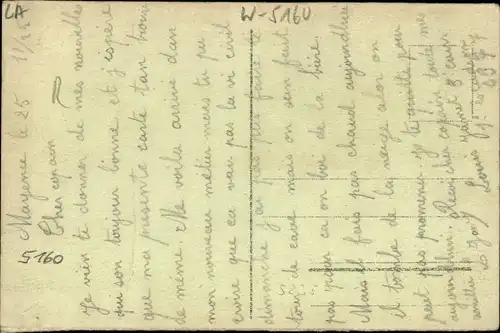 LA
W-5160
5160
Mayence le 25 1/25
Cher copain
Je vien te donner de mes nouvelles
qui son toujour bonne et j'espère
que ma présente carte tan trouve
de meme. Me voila arrive dan
mon nouveau métier mais tu peu
croire que ca vau pas la vi civil
dimanche j'ai pas pus faire le
tour de cave mais on sen feut
pas quan ca on boi de la bière.
Mais il fais pas chaud aujourdhui
il tombe de la neige alor on
peut pas promener. Je te quitte pour
aujourdhui. Recoi cher copin toute mes
amitier
Louis